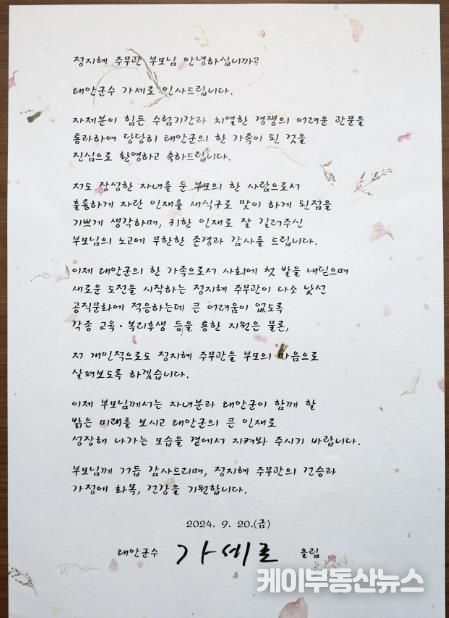 정지혜 주무관 부모님 안녕하십니까?
태안군수 가세로 인사드립니다.
자제분이 힘든 수험기간과 치열한 경쟁의 어려운 관문을
통과하여 당당히 태안군의 한 가족이 된 것을
진심으로 환영하고 축하드립니다.
저도 장성한 자녀를 둔 부모의 한 사람으로서
훌륭하게 자란 인재를 새식구로 맞이 하게 된점을
기쁘게 생각하며, 귀한 인재로 잘 길러주신
부모님의 노고에 무한한 존경과 감사를 드립니다.
이제 태안군의 한 가족으로서 사회에 첫 발을 내딛으며
새로운 도전을 시작하는 정지혜 주무관이 다소 낯선
공직문화에 적응하는데 큰 어려움이 없도록
각종 교육·복리후생 등을 통한 지원은 물론,
저 개인적으로도 정지혜 주무관을 부모의 마음으로
살펴보도록 하겠습니다.
이제 부모님께서는 자녀분과 태안군이 함께 할
밝은 미래를 보시고 태안군의 큰 인재로
성장해 나가는 모습을 곁에서 지켜봐 주시기 바랍니다.
부모님께 거듭 감사드리며, 정지혜 주무관의 건승과
가정에 화목, 건강을 기원합니다.
2024. 9. 20.(금)
태안군수 가세로 올림
케이부동산뉴스